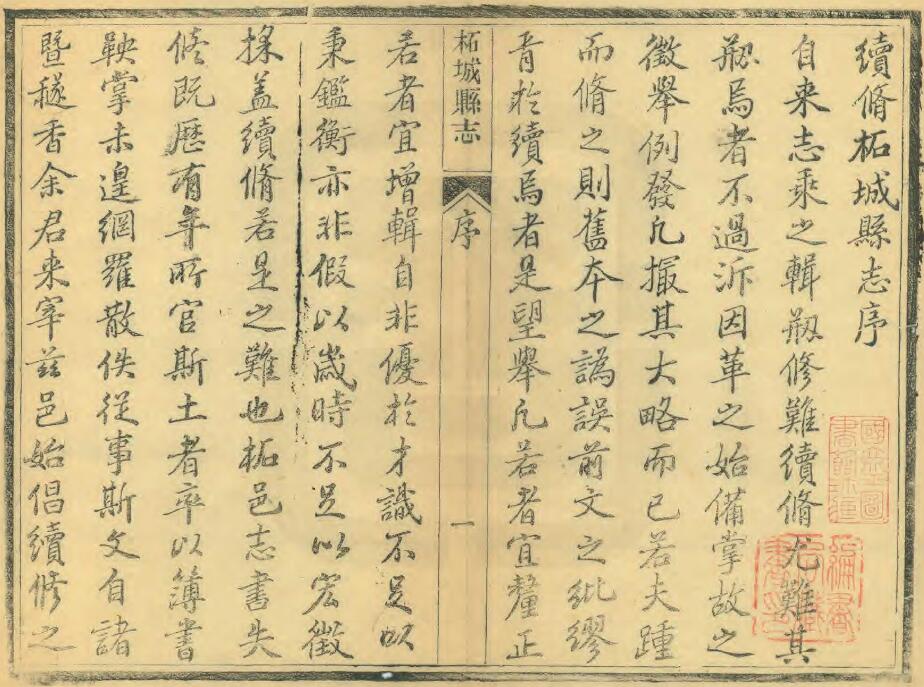 續脩柘城縣志序
自来志乘之輯剏修難續脩尤難其
剏焉者不過泝因革之始備掌故之
徵舉例發凡撮其大略而已若夫踵
而脩之則舊本之譌誤前文之紕繆
胥於續焉者是望舉凡若者宜釐正
柘城縣志
序
一
若者宜增輯自非優於才識不足以
秉鑑衡亦非假以歲時不足以宏徵
採盖續脩若是之難也柘邑志書失
修既歷有年所官斯土者卒以簿書
鞅掌未遑網羅散佚從事斯文自諸
暨毬香余君来宰兹邑始倡續修之